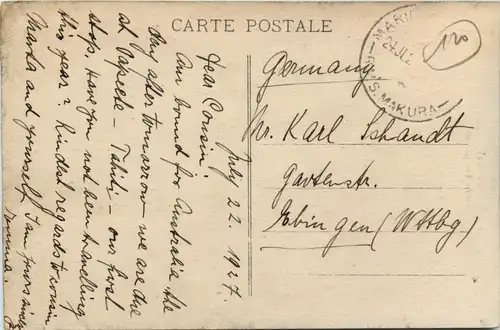 CARTE POSTALE
July 22. 1927.
Dear Cousin:
Am bound for Australia the
day after tomorrow we are due
at Papeete - Tahiti - our first
stop. Have you not been traveling
this year? Kindest regards to cousin
Marta and yourself I am yours
Emma.
Germany.
Mr. Karl Schandt
Gartenstr.
Ebingen (Wttbg)
MARI
24 JL 2
S. MAKURA
120